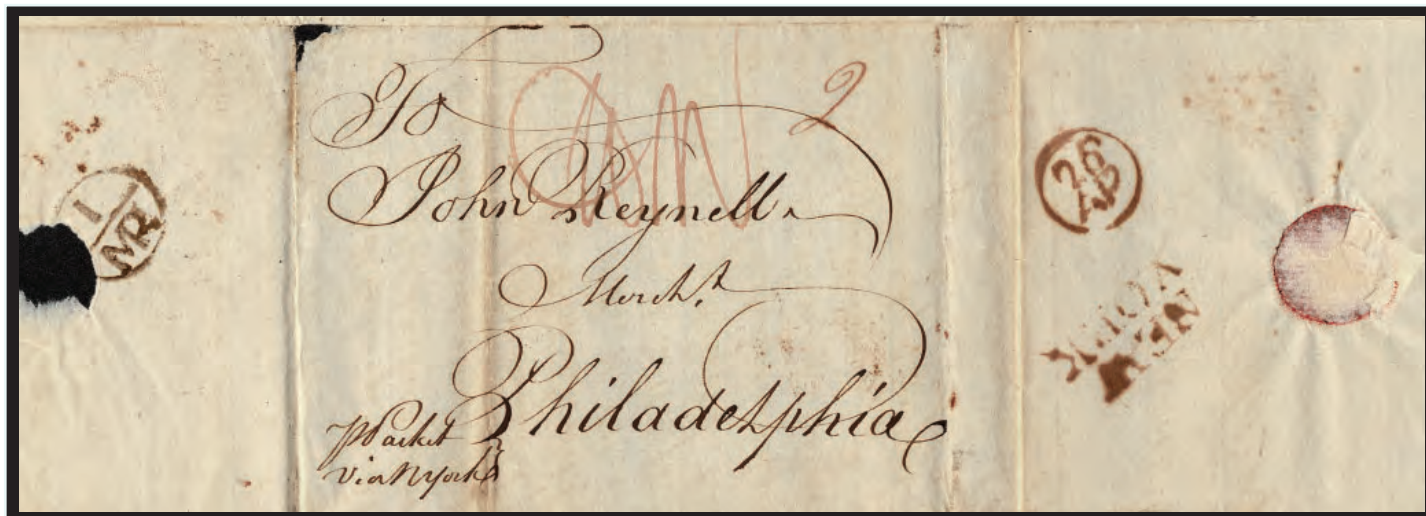 1
MR
To
2
John Reynell
Mercht.
Philadelphia
p Packet
via N York
26
AP
NEW
YORK